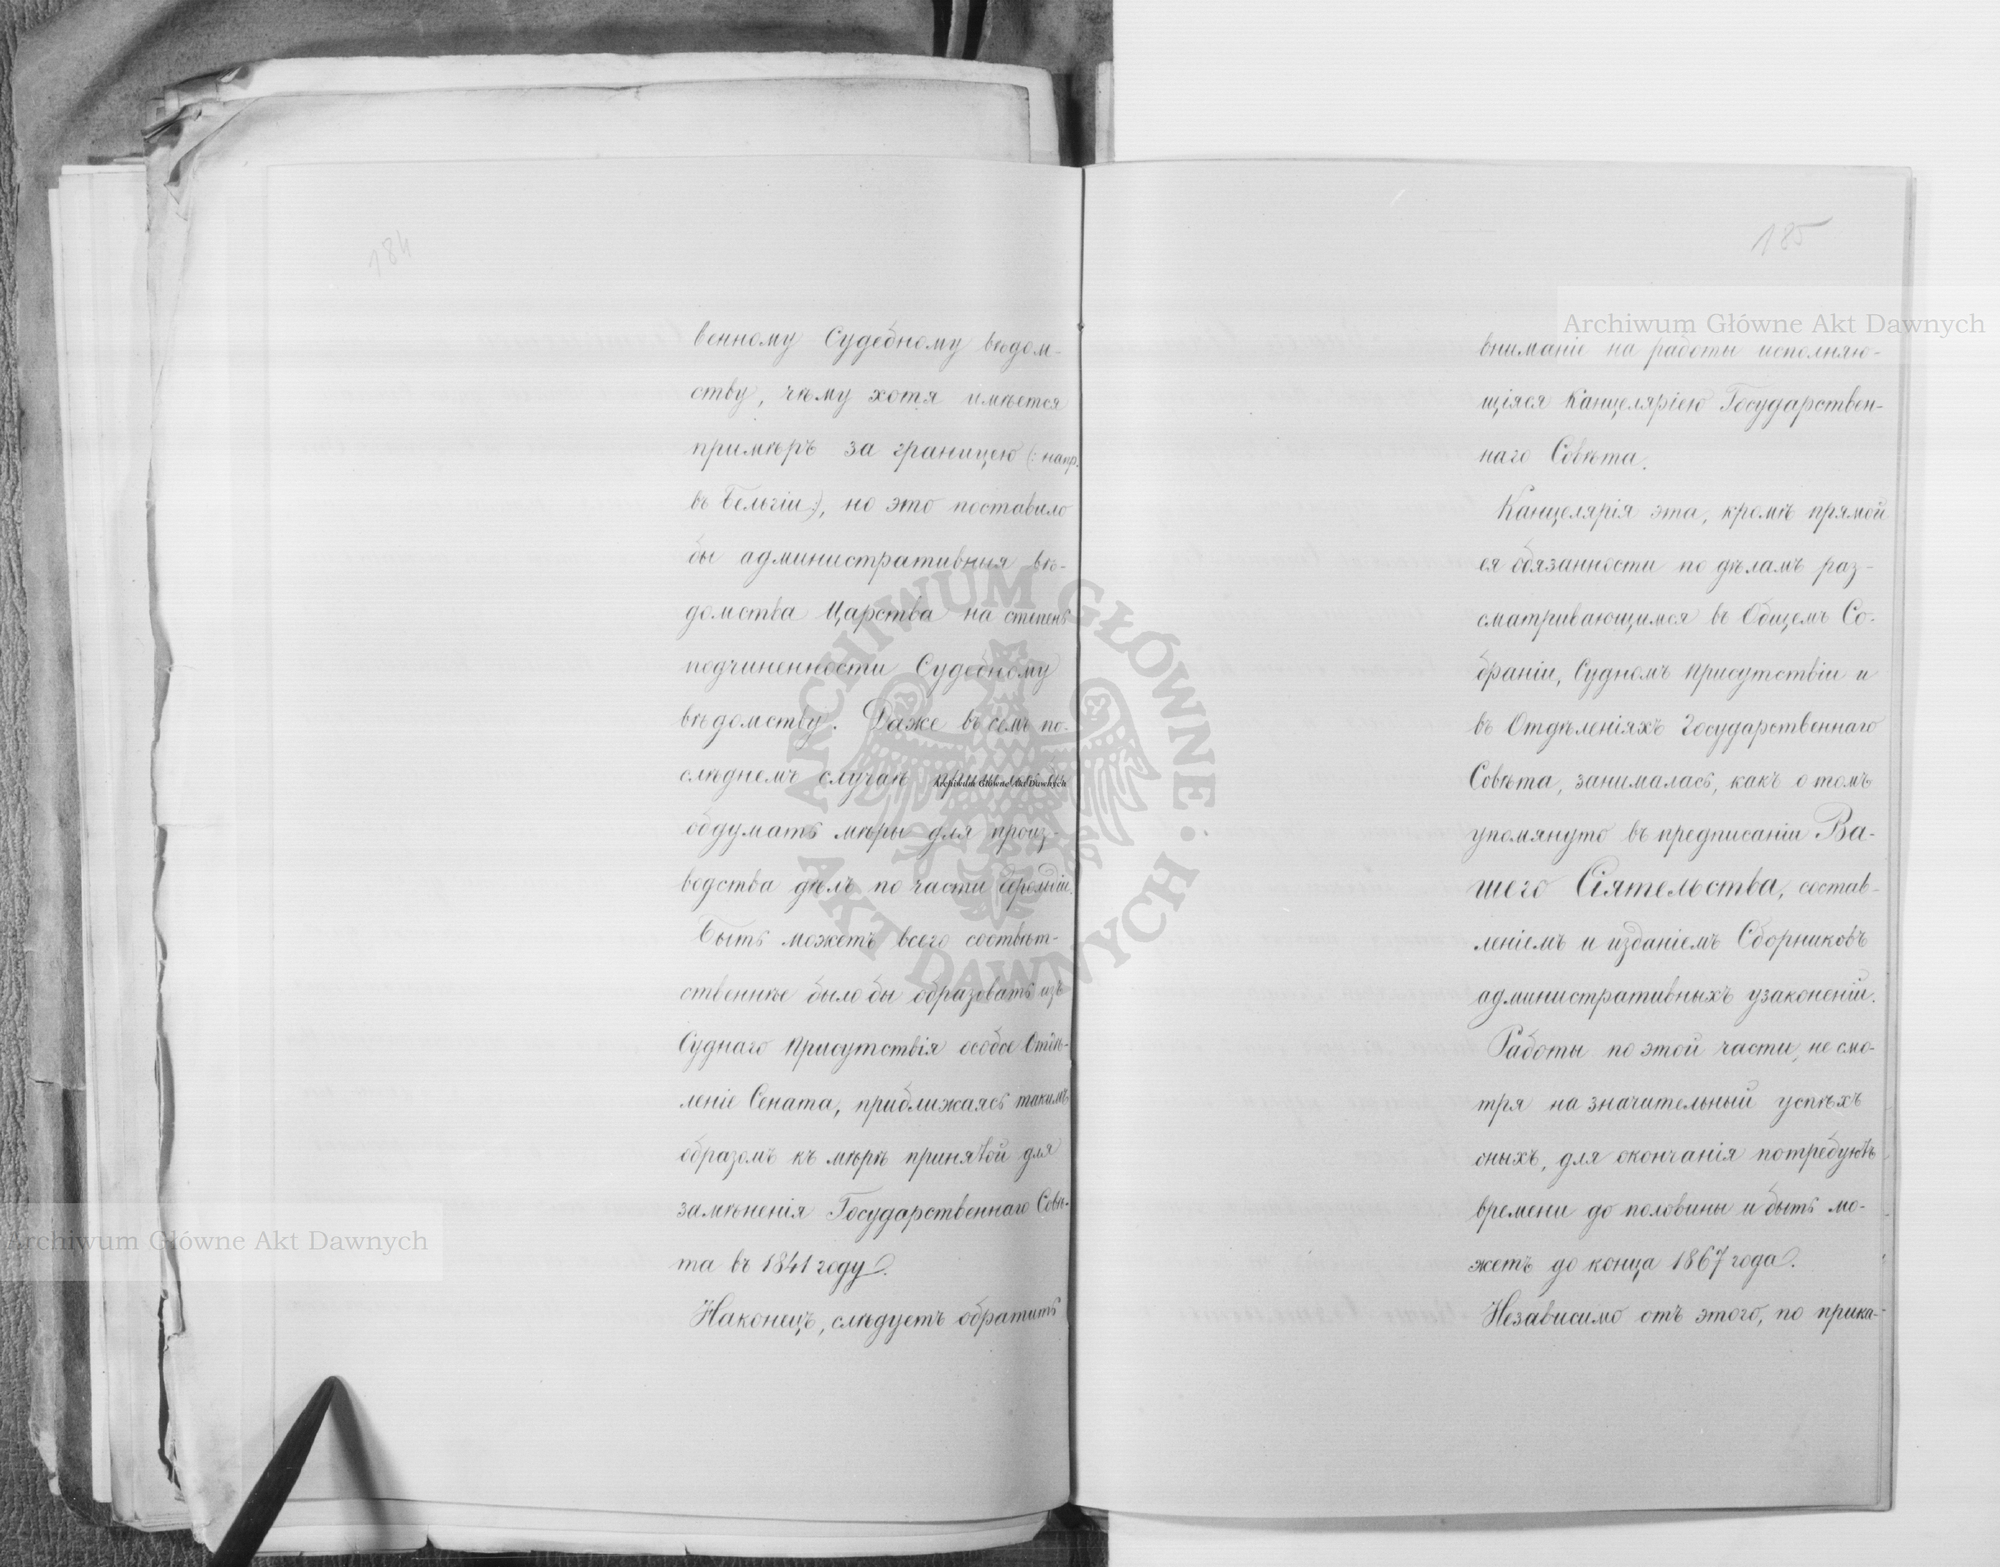 184
венному Судебному вѣдом-
ству, чему хотя имѣется
примѣръ за границею (: напр.
въ Бельгіи :), но это поставило
бы административныя вѣ-
домства Царства на степень
подчиненности Судебному
вѣдомству. Даже въ семъ по-
слѣднемъ случаѣ
обдумать мѣры для произ-
водства дѣлъ по части Герольдіи.
Быть можетъ всего соотвѣт-
ственнѣе было бы образовать изъ
Суднаго Присутствія особое Отдѣ-
леніе Сената, приближаясь такимъ
образомъ къ мѣрѣ принятой для
замѣненія Государственнаго Совѣ-
та въ 1841 году.
Наконецъ, слѣдуетъ обратить
185
вниманіе на работы исполняю-
щіяся Канцеляріею Государствен-
наго Совѣта.
Канцелярія эта, кромѣ прямой
ея обязанности по дѣламъ раз-
сматривающимся въ Общемъ Со-
браніи, Судномъ Присутствіи и
въ Отдѣленіяхъ Государственнаго
Совѣта, занималась, какъ о томъ
упомянуто въ предписаніи Ва-
шего Сіятельства, состав-
леніемъ и изданіемъ Сборниковъ
административныхъ узаконеній.
Работы по этой части, не смо-
тря на значительный успѣхъ
оныхъ, для окончанія потребуютъ
времени до половины и быть мо-
жетъ до конца 1867 года.
Независимо отъ этого, по прика-
Archiwum Główne Akt Dawnych
Archiwum Główne Akt Dawnych
Archiwum Główne Akt Dawnych
ARCHIWUM GŁÓWNE · AKT DAWNYCH ·